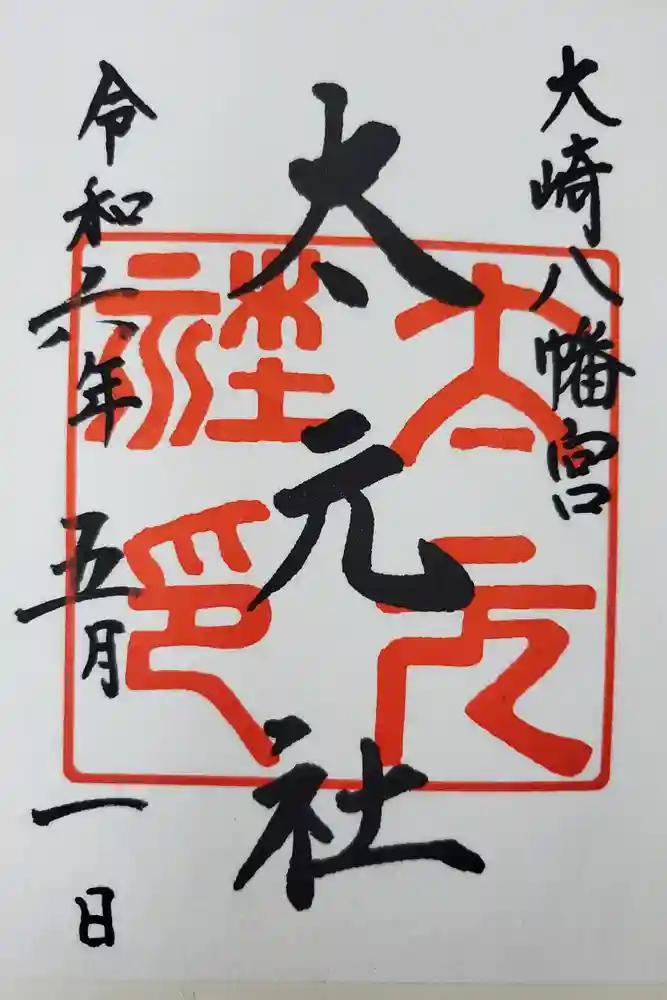 大崎八幡宮
太元社
太元社印
令和六年五月一日